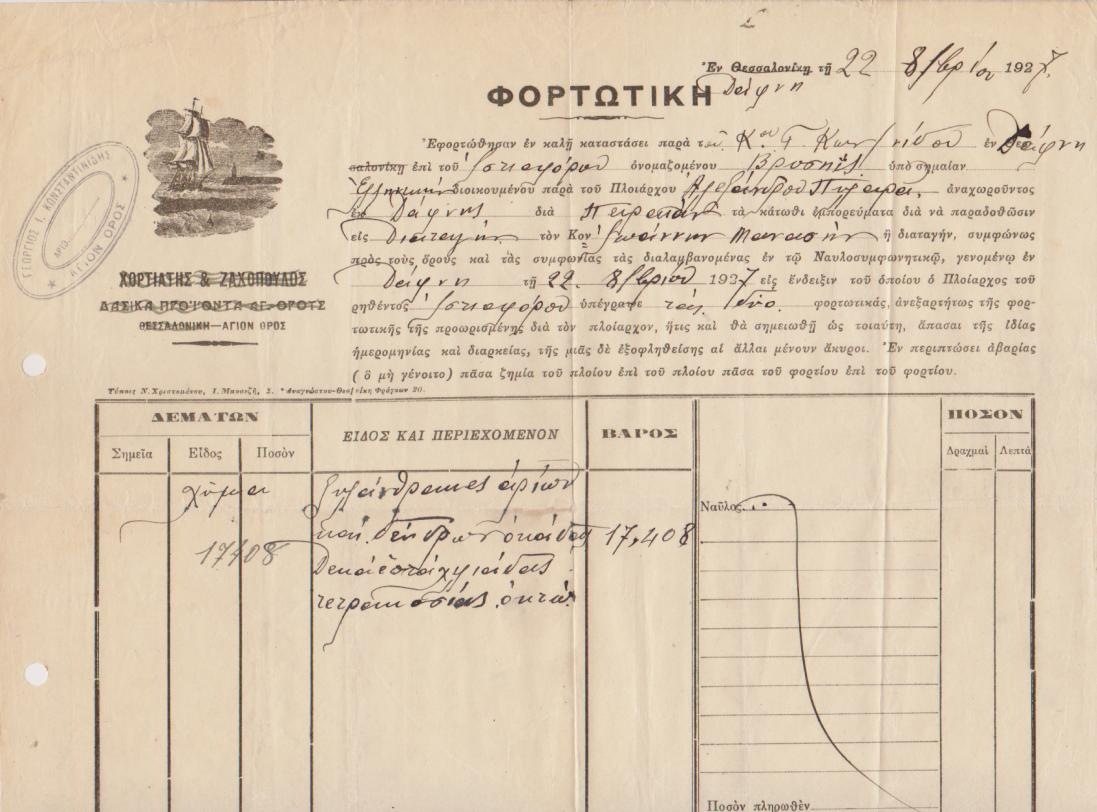 Ἐν Θεσσαλονίκῃ τῇ 22 8/βρίου 1927
Δάφνη
ΦΟΡΤΩΤΙΚΗ
Ἐφορτώθησαν ἐν καλῇ καταστάσει παρὰ τοῦ Κου Γ. Κων/νίδου ἐν Θεσ- Δάφνη
σαλονίκῃ ἐπὶ τοῦ ἱστιοφόρου ὀνομαζομένου ὑπὸ σημαίαν
Ἑλληνικὴν διοικουμένου παρὰ τοῦ Πλοιάρχου Ἀλεξάνδρου ἀναχωροῦντος
ἐκ Δάφνης διὰ Πειραιᾶ τὰ κάτωθι ἐμπορεύματα διὰ νὰ παραδοθῶσιν
εἰς Διαταγὴν τὸν Κον Ἰωάννην Μανασῆν ἢ διαταγήν, συμφώνως
πρὸς τοὺς ὅρους καὶ τὰς συμφωνίας τὰς διαλαμβανομένας ἐν τῷ Ναυλοσυμφωνητικῷ, γενομένῳ ἐν
Δάφνη τῇ 22 8/βρίου 1937 εἰς ἔνδειξιν τοῦ ὁποίου ὁ Πλοίαρχος τοῦ
ρηθέντος ἱστιοφόρου ὑπέγραψε τὰς δύο φορτωτικάς, ἀνεξαρτήτως τῆς φορ-
τωτικῆς τῆς προωρισμένης διὰ τὸν πλοίαρχον, ἥτις καὶ θὰ σημειωθῇ ὡς τοιαύτη, ἅπασαι τῆς ἰδίας
ἡμερομηνίας καὶ διαρκείας, τῆς μιᾶς δὲ ἐξοφληθείσης αἱ ἄλλαι μένουν ἄκυροι. Ἐν περιπτώσει ἀβαρίας
(ὃ μὴ γένοιτο) πᾶσα ζημία τοῦ πλοίου ἐπὶ τοῦ πλοίου πᾶσα τοῦ φορτίου ἐπὶ τοῦ φορτίου.
ΓΕΩΡΓΙΟΣ Ι. ΚΩΝΣΤΑΝΤΙΝΙΔΗΣ
ΑΡΙΘ.
ΑΓΙΟΝ ΟΡΟΣ
ΧΟΡΤΙΑΤΗΣ & ΖΑΧΟΠΟΥΛΟΣ
ΔΑΣΙΚΑ ΠΡΟΪΟΝΤΑ ΑΓ. ΟΡΟΥΣ
ΘΕΣΣΑΛΟΝΙΚΗ—ΑΓΙΟΝ ΟΡΟΣ
Τύποις Ν. Χριστομάνου, Ι.
ΔΕΜΑΤΩΝ
Σημεῖα Εἶδος Ποσὸν
ΕΙΔΟΣ ΚΑΙ ΠΕΡΙΕΧΟΜΕΝΟΝ
ΒΑΡΟΣ
ΠΟΣΟΝ
Δραχμαὶ Λεπτὰ
χύμα ξυλάνθρακες ἀρίων
καὶ δένδρων ὀκάδας 17,408
17408
Δεκαεπτὰ χιλιάδας
τετρακοσίας ὀκτώ
Ναῦλος
Ποσὸν πληρωθὲν